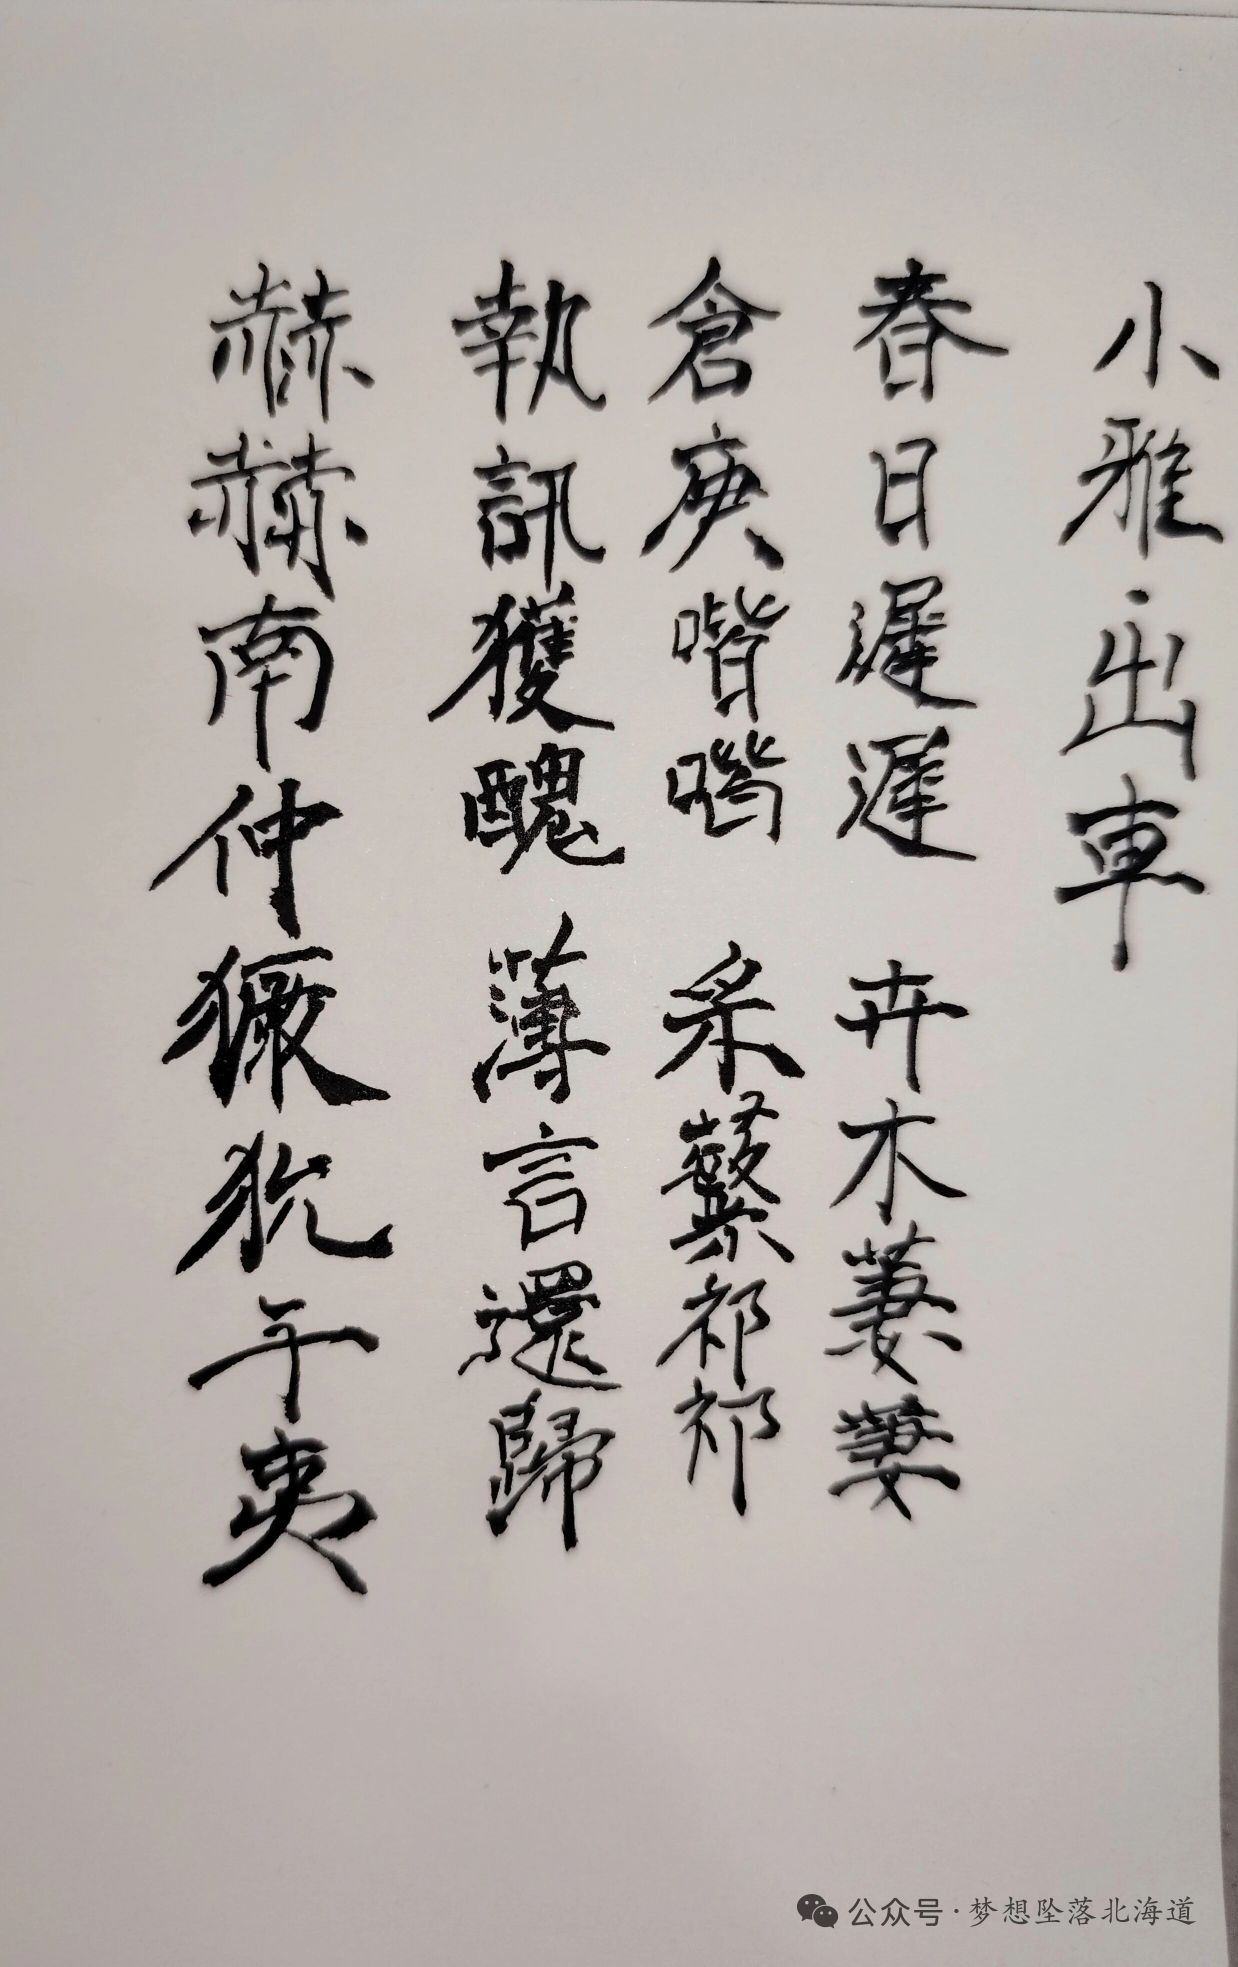 小雅·出車
春日遲遲 卉木萋萋
倉庚喈喈 采蘩祁祁
執訊獲醜 薄言還歸
赫赫南仲玁狁于夷
公众号·梦想坠落北海道